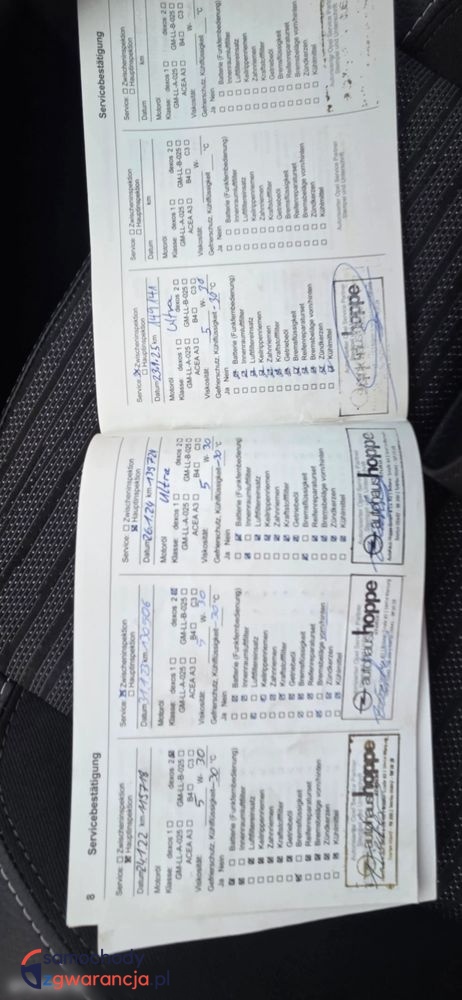 8
Servicebestätigung
Service: ☐ Zwischeninspektion
☒ Hauptinspektion
Datum 24.1.22 km 115718
Motoröl
Klasse: dexos 1 ☐ dexos 2 ☒
GM-LL-A-025 ☐ GM-LL-B-025 ☐
ACEA A3 ☐ B4 ☐ C3 ☐
Viskosität: 5 W- 30
Gefrierschutz, Kühlflüssigkeit -30 °C
Ja Nein
Batterie (Funkfernbedienung)
Innenraumluftfilter
Luftfiltereinsatz
Keilrippenriemen
Zahnriemen
Kraftstofffilter
Getriebeöl
Bremsflüssigkeit
Reifenreparaturset
Bremsbeläge vorn/hinten
Zündkerzen
Kühlmittel
autohaus hoppe
Service: ☒ Zwischeninspektion
☐ Hauptinspektion
Datum km 130506
Motoröl
Klasse: dexos 1 ☐ dexos 2 ☒
GM-LL-A-025 ☐ GM-LL-B-025 ☐
ACEA A3 ☐ B4 ☐ C3 ☐
Viskosität: 5 W- 30
Gefrierschutz, Kühlflüssigkeit -30 °C
Ja Nein
Batterie (Funkfernbedienung)
Innenraumluftfilter
Luftfiltereinsatz
Keilrippenriemen
Zahnriemen
Kraftstofffilter
Getriebeöl
Bremsflüssigkeit
Reifenreparaturset
Bremsbeläge vorn/hinten
Zündkerzen
Kühlmittel
autohaus hoppe
Service: ☐ Zwischeninspektion
☒ Hauptinspektion
Datum 26.1.24 km 139724
Motoröl Ultra
Klasse: dexos 1 ☐ dexos 2 ☐
GM-LL-A-025 ☐ GM-LL-B-025 ☐
ACEA A3 ☐ B4 ☐ C3 ☐
Viskosität: 5 W- 30
Gefrierschutz, Kühlflüssigkeit -30 °C
Ja Nein
Batterie (Funkfernbedienung)
Innenraumluftfilter
Luftfiltereinsatz
Keilrippenriemen
Zahnriemen
Kraftstofffilter
Getriebeöl
Bremsflüssigkeit
Reifenreparaturset
Bremsbeläge vorn/hinten
Zündkerzen
Kühlmittel
autohaus hoppe
Servicebestätigung
Service: ☒ Zwischeninspektion
☐ Hauptinspektion
Datum 23.1.25 km 149141
Motoröl Ultra
Klasse: dexos 1 ☐ dexos 2 ☐
GM-LL-A-025 ☐ GM-LL-B-025 ☐
ACEA A3 ☐ B4 ☐ C3 ☐
Viskosität: 5 W- 30
Gefrierschutz, Kühlflüssigkeit -30 °C
Ja Nein
Batterie (Funkfernbedienung)
Innenraumluftfilter
Luftfiltereinsatz
Keilrippenriemen
Zahnriemen
Kraftstofffilter
Getriebeöl
Bremsflüssigkeit
Reifenreparaturset
Bremsbeläge vorn/hinten
Zündkerzen
Kühlmittel
hoppe
Service: ☐ Zwischeninspektion
☐ Hauptinspektion
Datum km
Motoröl
Klasse: dexos 1 ☐ dexos 2 ☐
GM-LL-A-025 ☐ GM-LL-B-025 ☐
ACEA A3 ☐ B4 ☐ C3 ☐
Viskosität: W-
Gefrierschutz, Kühlflüssigkeit °C
Ja Nein
Batterie (Funkfernbedienung)
Innenraumluftfilter
Luftfiltereinsatz
Keilrippenriemen
Zahnriemen
Kraftstofffilter
Getriebeöl
Bremsflüssigkeit
Reifenreparaturset
Bremsbeläge vorn/hinten
Zündkerzen
Kühlmittel
Autorisierter Opel Service Partner
Stempel und Unterschrift
Service: ☐ Zwischeninspektion
☐ Hauptinspektion
Datum km
Motoröl
Klasse: dexos 1 ☐ dexos 2 ☐
GM-LL-A-025 ☐ GM-LL-B-025 ☐
ACEA A3 ☐ B4 ☐ C3 ☐
Viskosität: W-
Gefrierschutz, Kühlflüssigkeit °C
Ja Nein
Batterie (Funkfernbedienung)
Innenraumluftfilter
Luftfiltereinsatz
Keilrippenriemen
Zahnriemen
Kraftstofffilter
Getriebeöl
Bremsflüssigkeit
Reifenreparaturset
Bremsbeläge vorn/hinten
Zündkerzen
Kühlmittel
Autorisierter Opel Service Partner
Stempel und Unterschrift
samochody
zgwarancja.pl